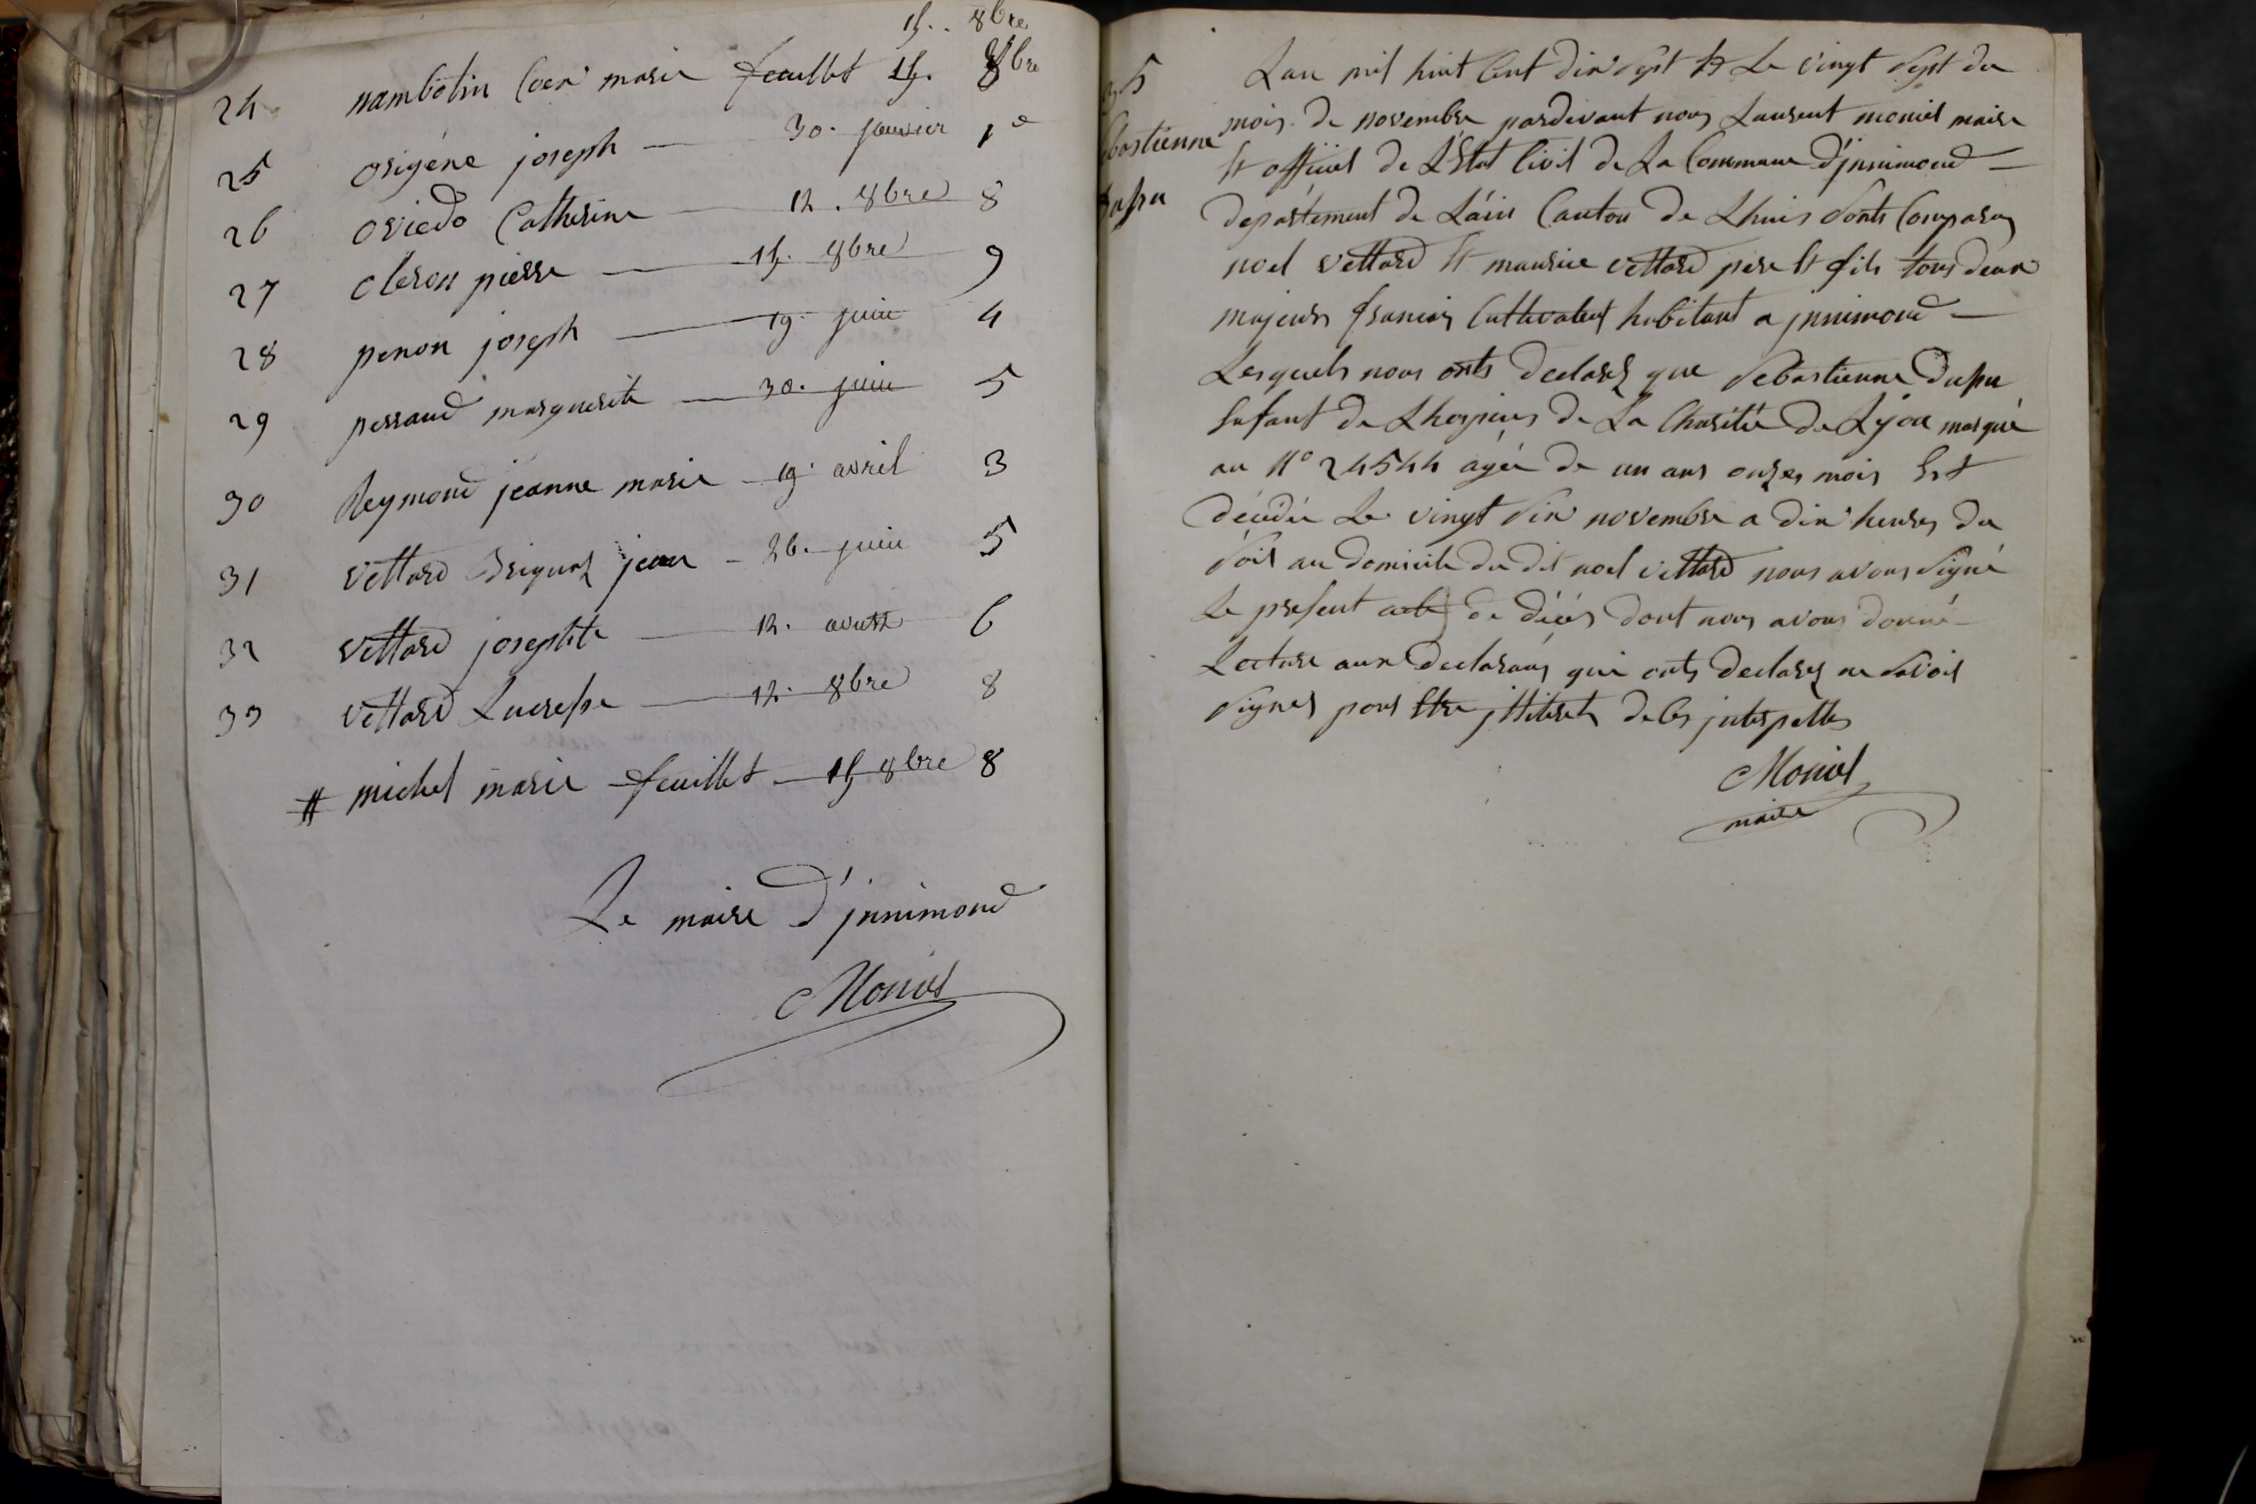 15. 8bre
24 nambotin Coer marie feuillet 15. 8bre
25 origéne joseph 30. janvier 1e
26 oviedo Catherine 12. 8bre 8
27 oleron pierre 15. 8bre 9
28 penon joseph 19. juin 4
29 perraud marguerite 30. juin 5
30 Reymond jeanne marie 19. avril 3
31 vettard jean 26. juin 5
32 vettard josephte 12. aoust 6
33 vettard Lucresse 12. 8bre 8
# michel marie feuillet 15 8bre 8
Le maire d'jnnimond
Moniel
35
Sebastienne
Dupu
Lan mil huit Cent dix Sept Et Le vingt Sept du
mois de novembre pardevant nous Laurent moniel maire
Et officiel de L'Etat Civil de La Commune d'jnnimond
departement de L'ain Canton de Lhuis Sonts Comparus
noel vettard Et maurice vettard pere Et fils tous deux
majeurs francais Cultivateurs habitant a jnnimond
Lesquels nous onts declarez que Sebastienne Dupu
Enfant de Lhospices de La Charitée de Lyon marqué
au N° 24544 agée de un ans onzes mois Est
décédée Le vingt Six novembre a dix heures du
Soir au domicile du dit noel vettard nous avons Signé
Le present acte de décés dont nous avons donné
Lecture aux declarans qui onts declarez ne Savoir
Signer pour Etre jlliteret de Ces jnterpellés
Moniel
maire